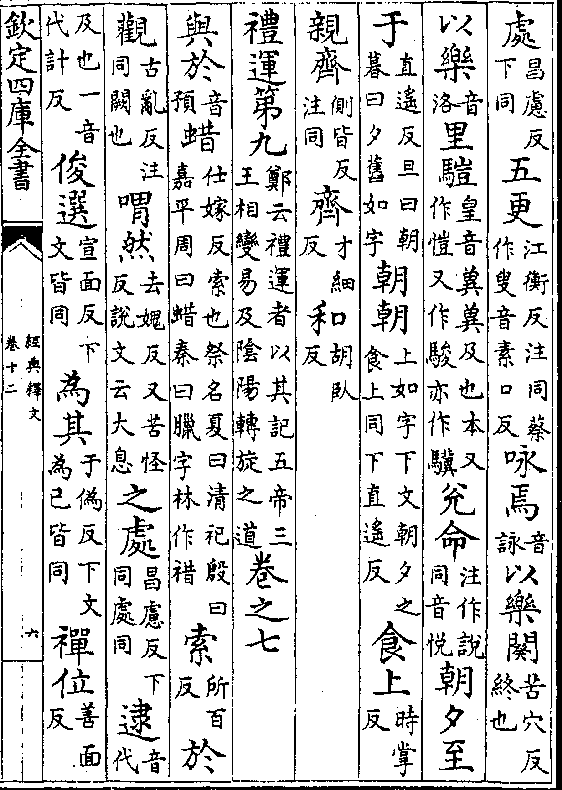 處昌慮反下同五更江衡反注同蔡作叟音素口反咏焉音詠以樂闋苦穴反終也
以樂音洛里皇音冀冀及也本又作愷又作駿亦作驥兌命注作說同音悅朝夕至
于直遙反旦曰朝暮曰夕舊如字朝朝上如字下文朝夕之食上同下直遙反食上時掌反
親齊側皆反注同齊才細反和胡臥反
禮運第九鄭云禮運者以其記五帝三王相變易及陰陽轉旋之道卷之七
與於音預蜡仕嫁反索也祭名夏曰清祀殷曰嘉平周曰蜡秦曰臘字林作䄍索所百反於
觀古亂反注同闕也喟然去媿反又苦怪反說文云大息之處昌慮反下同處同逮音代
及也一音代計反俊選宣面反下文皆同為其于偽反下文為已皆同禪位善面反
欽定四庫全書
經典釋文
卷十二
六